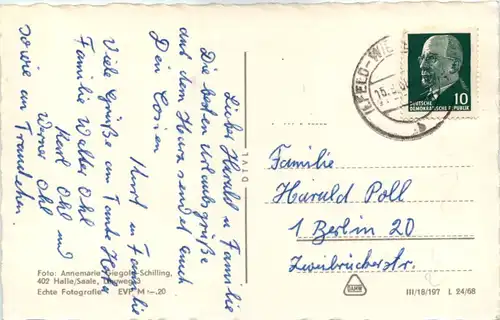 Liebe Harald u Familie
Die besten Urlaubsgrüße
aus dem Harz sendet euch
Dein Cosien
Horst u Familie
Viele Grüße an Tante
Familie Walter Ohl
Karl Ohl und
Werner Ohl
sowie an Traudchen.
Foto: Annemarie Giegold-Schilling,
402 Halle/Saale,
Echte Fotografie EVP M -.20
DTVL
DEUTSCHE
DEMOKRATISCHE REPUBLIK
10
Familie
Harald Poll
1 Berlin 20
Zweibrückerstr.
III/18/197 L 24/68